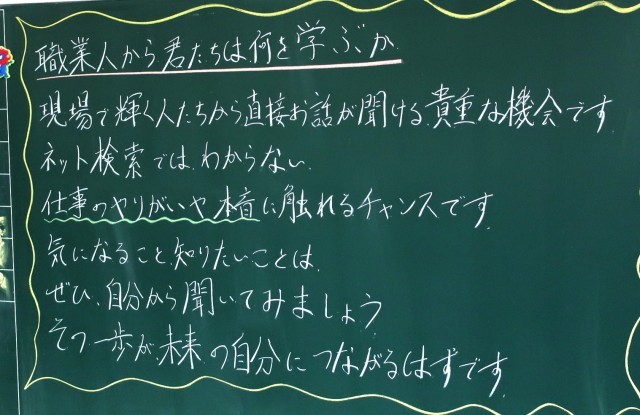 職業人から君たちは何を学ぶか
現場で輝く人たちから直接お話が聞ける貴重な機会です
ネット検索では、わからない、
仕事のやりがいや本音に触れるチャンスです
気になること、知りたいことは、
ぜひ、自分から聞いてみましょう
その一歩が、未来の自分につながるはずです